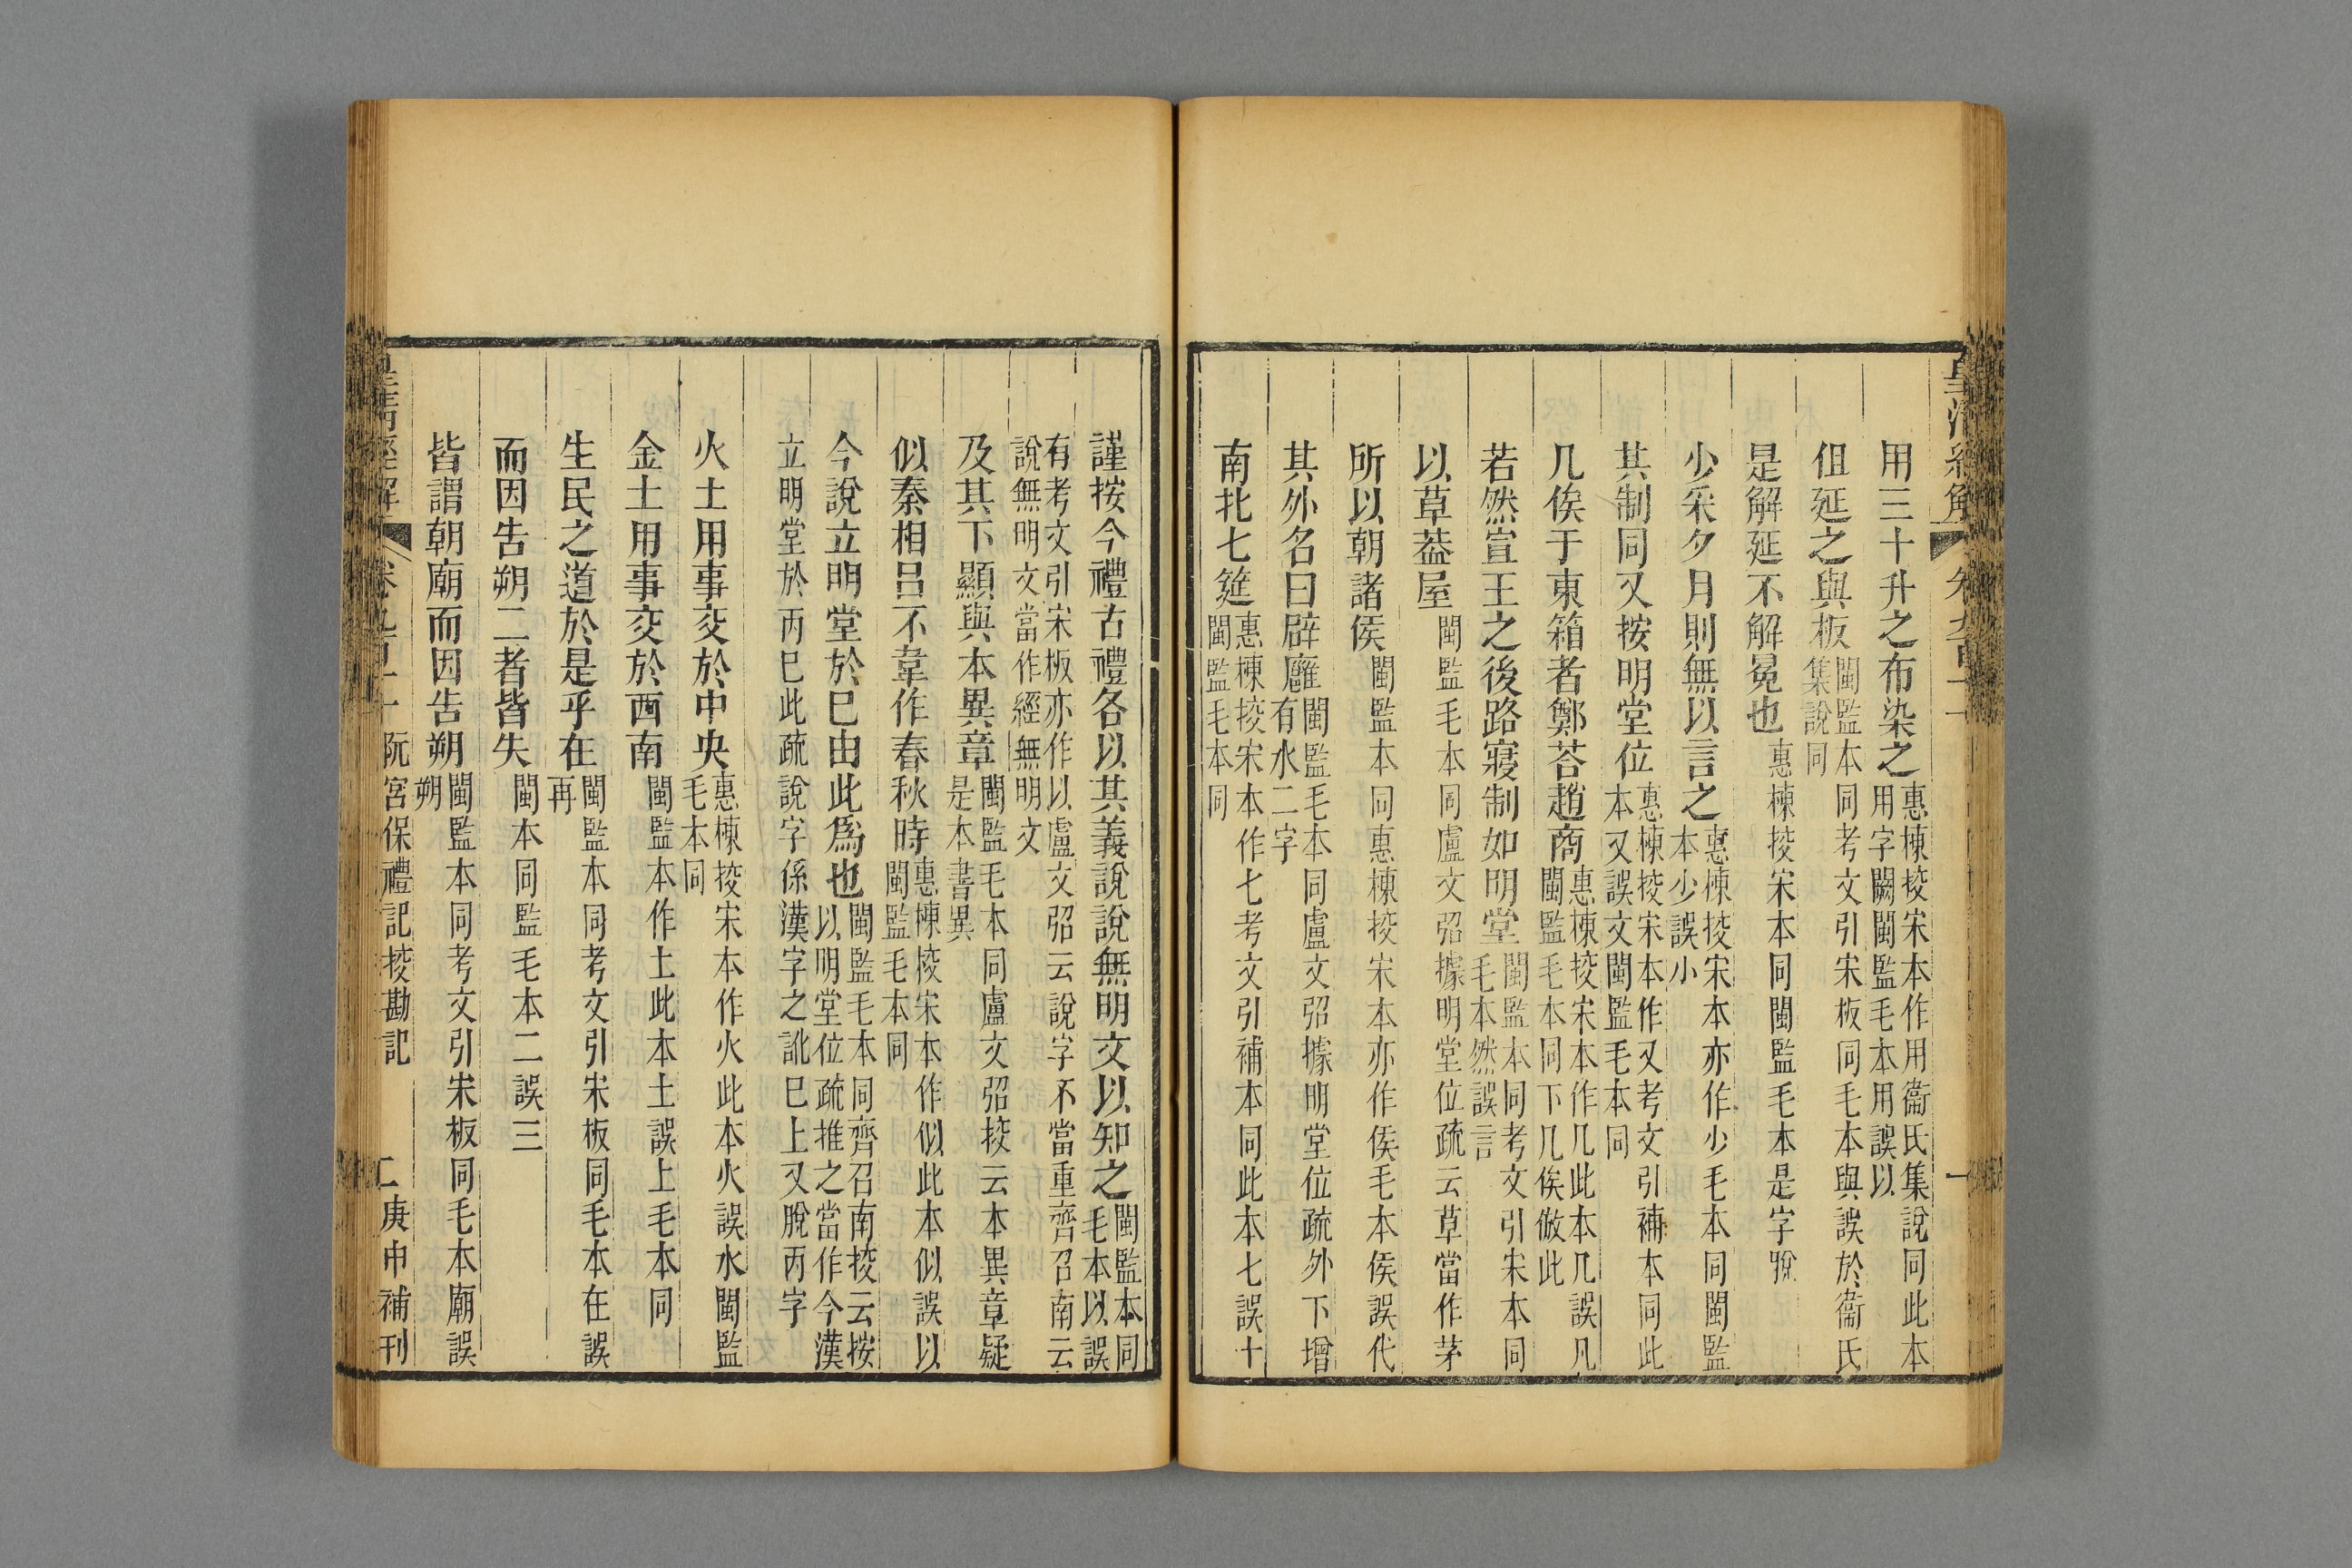 用三十升之布染之惠棟挍宋本作用衞氏集說同此本用字闕閩監毛本用誤以
俎延之與板閩監本同考文引宋板同毛本與誤於衞氏集說同
是解延不解冕也惠棟挍宋本同閩監毛本是字脫
少采夕月則無以言之惠棟挍宋本亦作少毛本同閩監本少誤小
其制同又按明堂位惠棟挍宋本作又考文引補本同此本又誤文閩監毛本同
几俟于東箱者鄭荅趙商惠棟挍宋本作几此本几誤凡閩監毛本同下几俟倣此
若然宣王之後路寢制如明堂閩監本同考文引宋本同毛本然誤言
以草葢屋閩監毛本同盧文弨據明堂位疏云草當作茅
所以朝諸侯閩監本同惠棟挍宋本亦作侯毛本侯誤代
其外名曰辟廱閩監毛本同盧文弨據明堂位疏外下增有水二字
南北七筵惠棟挍宋本作七考文引補本同此本七誤十閩監毛本同
謹按今禮古禮各以其義說說無明文以知之閩監本同毛本以誤
有考文引宋板亦作以盧文弨云說字不當重齊召南云
說無明文當作經無明文
及其下顯與本異章閩監毛本同盧文弨挍云本異章疑是本書異
似秦相呂不韋作春秋時惠棟挍宋本作似此本似誤以閩監毛本同
今說立明堂於巳由此爲也閩監毛本同齊召南挍云按以明堂位疏推之當作今漢
立明堂於丙巳此疏說字係漢字之訛巳上又脫丙字
火土用事交於中央惠棟挍宋本作火此本火誤水閩監毛本同
金土用事交於西南閩監本作土此本土誤上毛本同
生民之道於是乎在閩監本同考文引宋板同毛本在誤再
而因告朔二者皆失閩本同監毛本二誤三
皆謂朝廟而因告朔閩監本同考文引宋板同毛本廟誤朔
阮宮保禮記挍勘記
庚申補刊